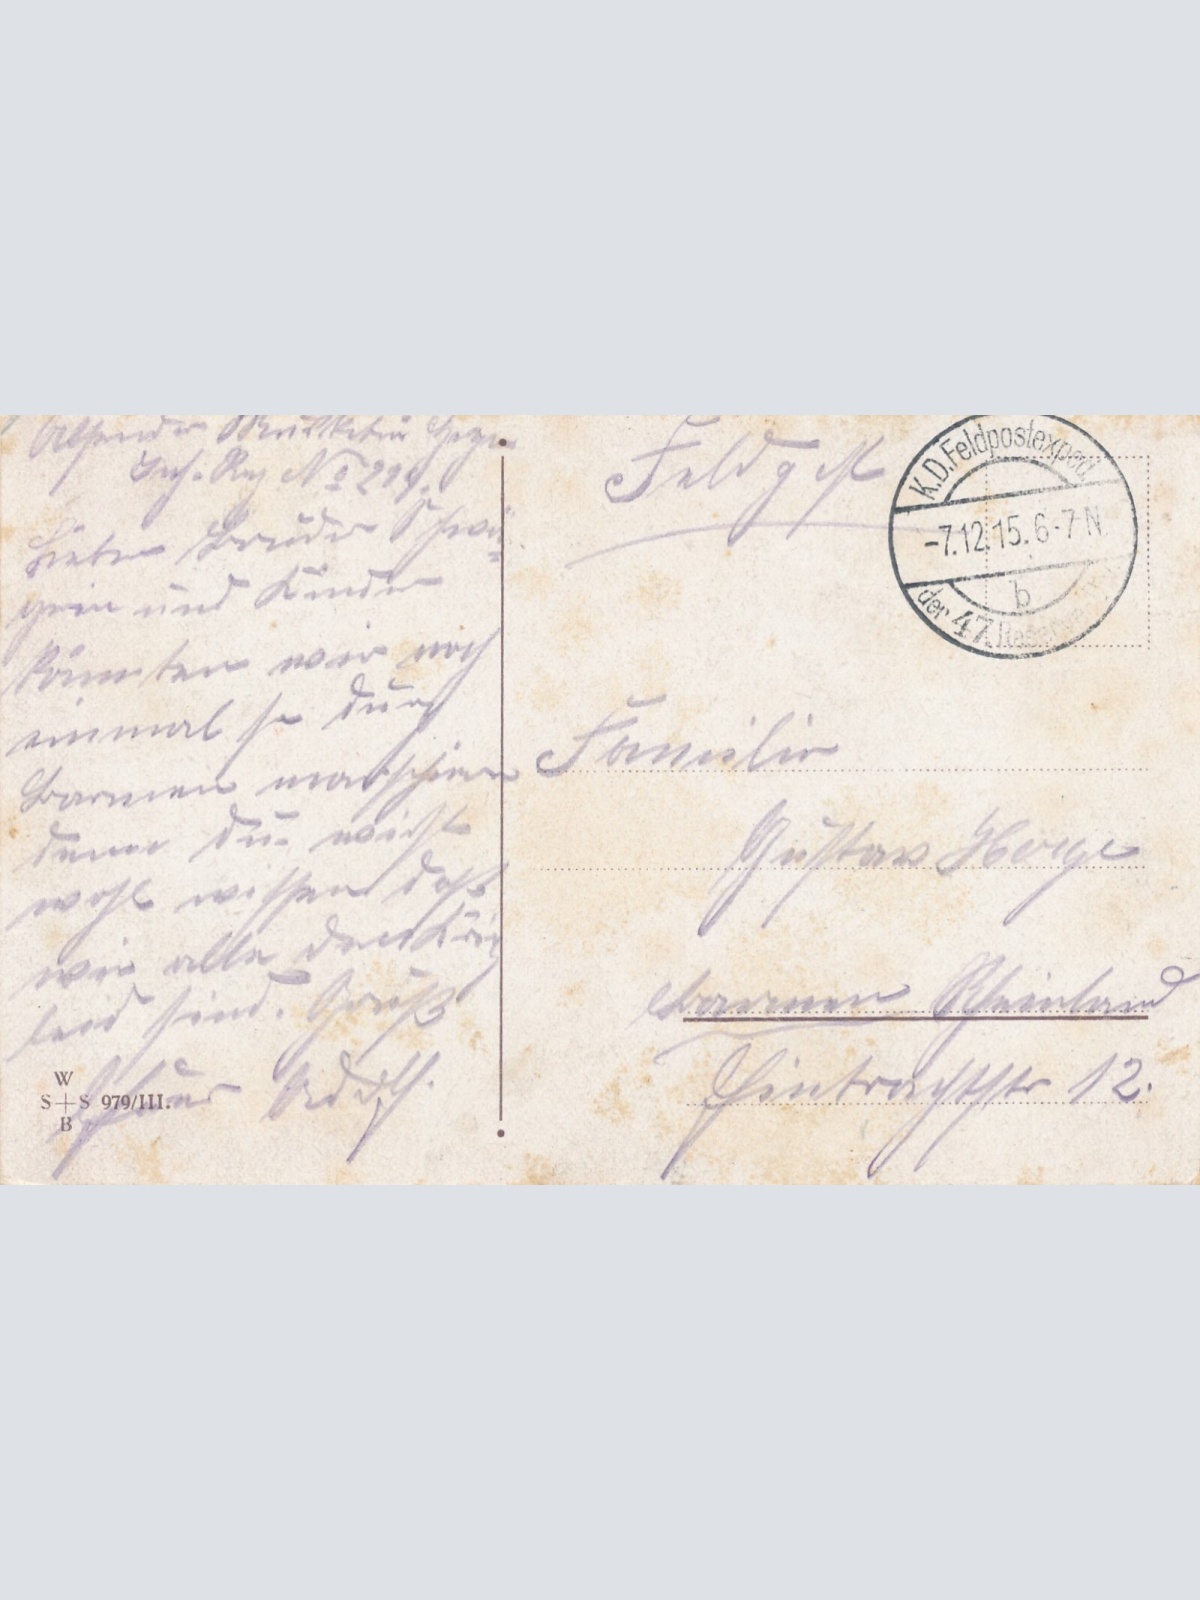 Absender Musketier Hoge
Inf. Reg No 219.
Lieber Bruder Schwä-
gerin und Kinder
Könnten wir noch
einmal so durch
Barmen marschieren
denn du wirst
wohl wissen daß
wir alle den Krieg
leid sind. Gruß
Euer Adolf.
W
S + S 979/III.
B
Feldpost
K.D. Feldpostexped.
-7.12.15. 6-7 N.
b
der 47. Reserve
Familie
Gustav Hoge
Barmen Rheinland
Eintrachtstr 12.